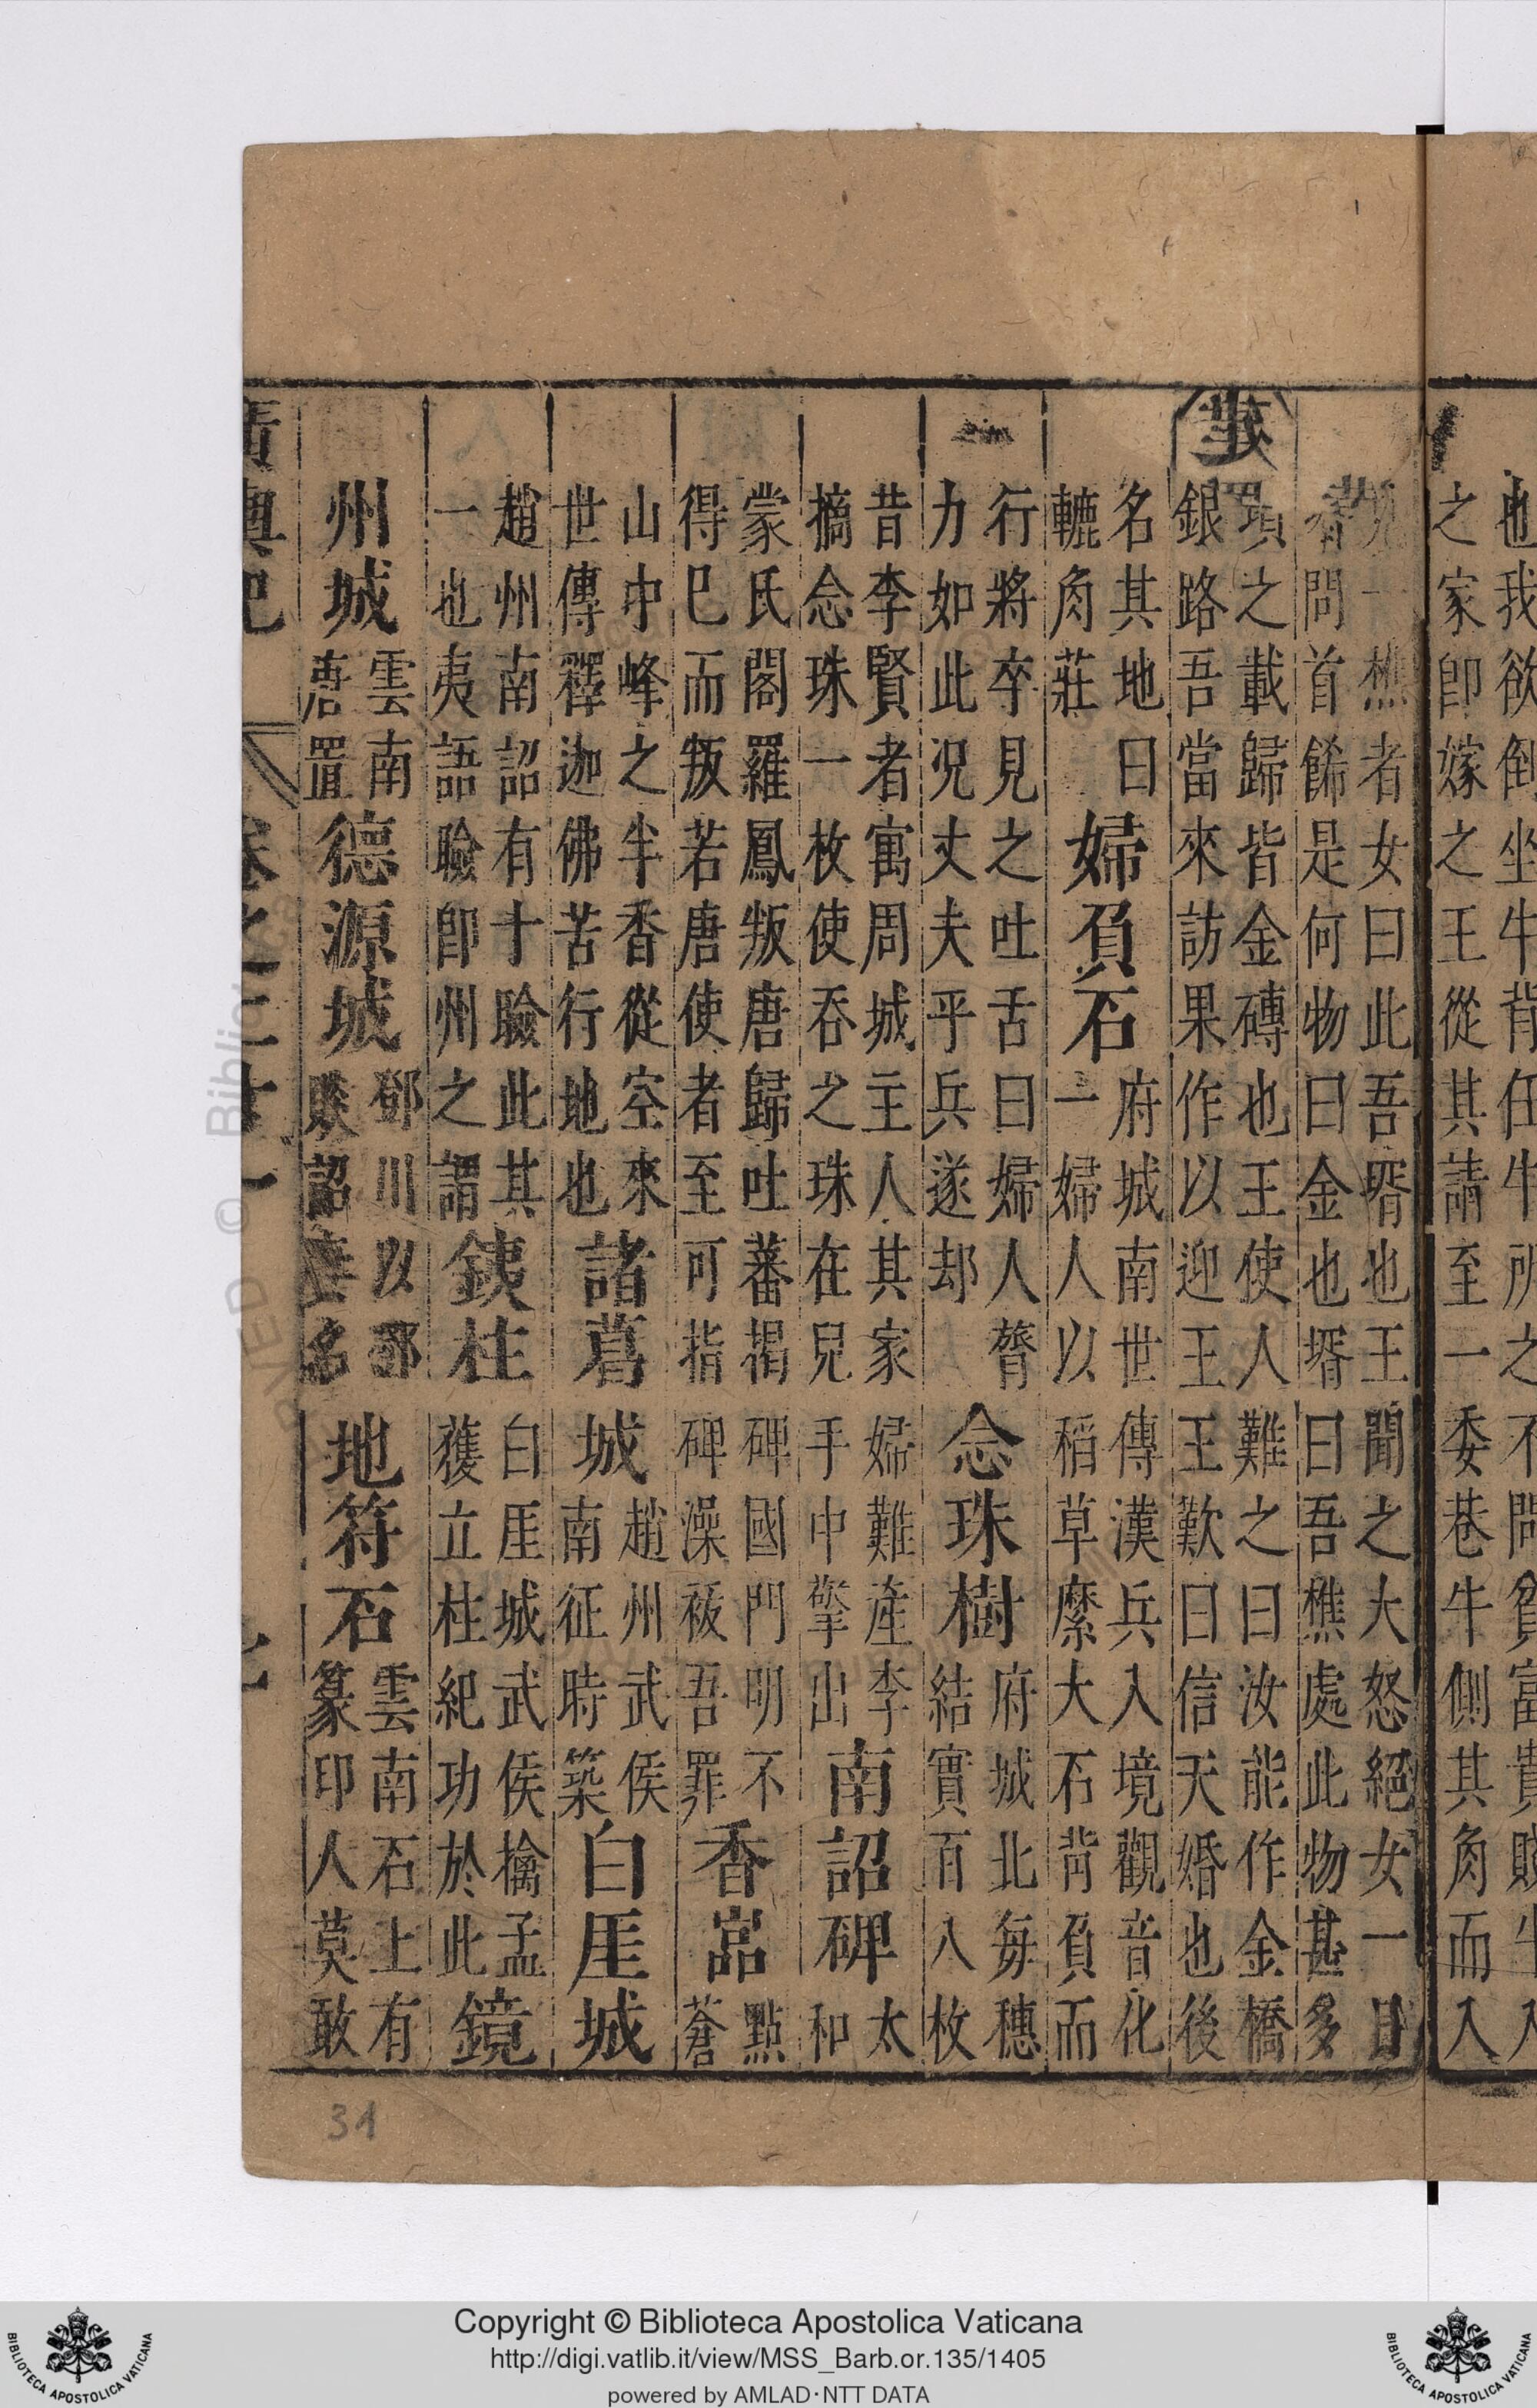 也我欲倒坐牛背任牛所之不問貧富貴賤牛入
之家卽嫁之王從其請至一委巷牛側其角而入
一樵者女曰此吾壻也王聞之大怒絕女一日
問首餙是何物曰金也壻曰吾樵處此物甚多
之載歸皆金磚也王使人難之曰汝能作金橋
銀路吾當來訪果作以迎王王歎曰信天婚也後
名其地曰
轆角莊
婦負石
府城南世傳漢兵入境觀音化
一婦人以稻草縻大石背負而
行將卒見之吐舌曰婦人膂
力如此況丈夫乎兵遂却
念珠樹
府城北每穗
結實百八枚
昔李賢者寓周城主人其家婦難產李
摘念珠一枚使吞之珠在兒手中擎出
南詔碑
太
和
蒙氏閣羅鳳叛唐歸吐蕃揭碑國門明不
得巳而叛若唐使者至可指碑澡祓吾罪
香嵓
點
蒼
山中峰之半香從空來
世傳釋迦佛苦行地也
諸葛城
趙州武侯
南征時築
白厓城
趙州南詔有十瞼此其
一也夷語瞼卽州之謂
鐵柱
白厓城武侯擒孟
獲立柱紀功於此
鏡
州城
雲南
唐置
德源城
鄧川以鄧
賧詔名
地符石
雲南石上有
篆印人莫敢
31
Copyright © Biblioteca Apostolica Vaticana
http://digi.vatlib.it/view/MSS_Barb.or.135/1405
powered by AMLAD·NTT DATA
BIBLIOTECA APOSTOLICA VATICANA
BIBLIOTECA APOSTOLICA VATICANA